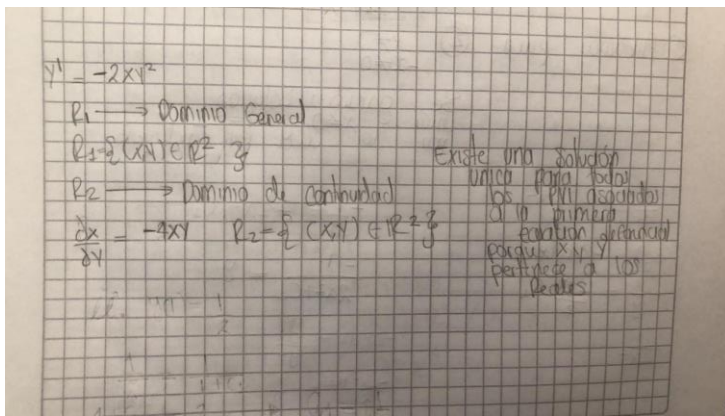 y' = -2xy²
R₁ → Dominio General
R₁={(x,y) ∈ ℝ² }
R₂ → Dominio de continuidad
∂x/∂y = -4xy R₂={ (x,y) ∈ ℝ² }
Existe una solución
única para todos
los PVI asociados
a la primera
ecuación diferencial
porque x y y
pertenece a los
Reales